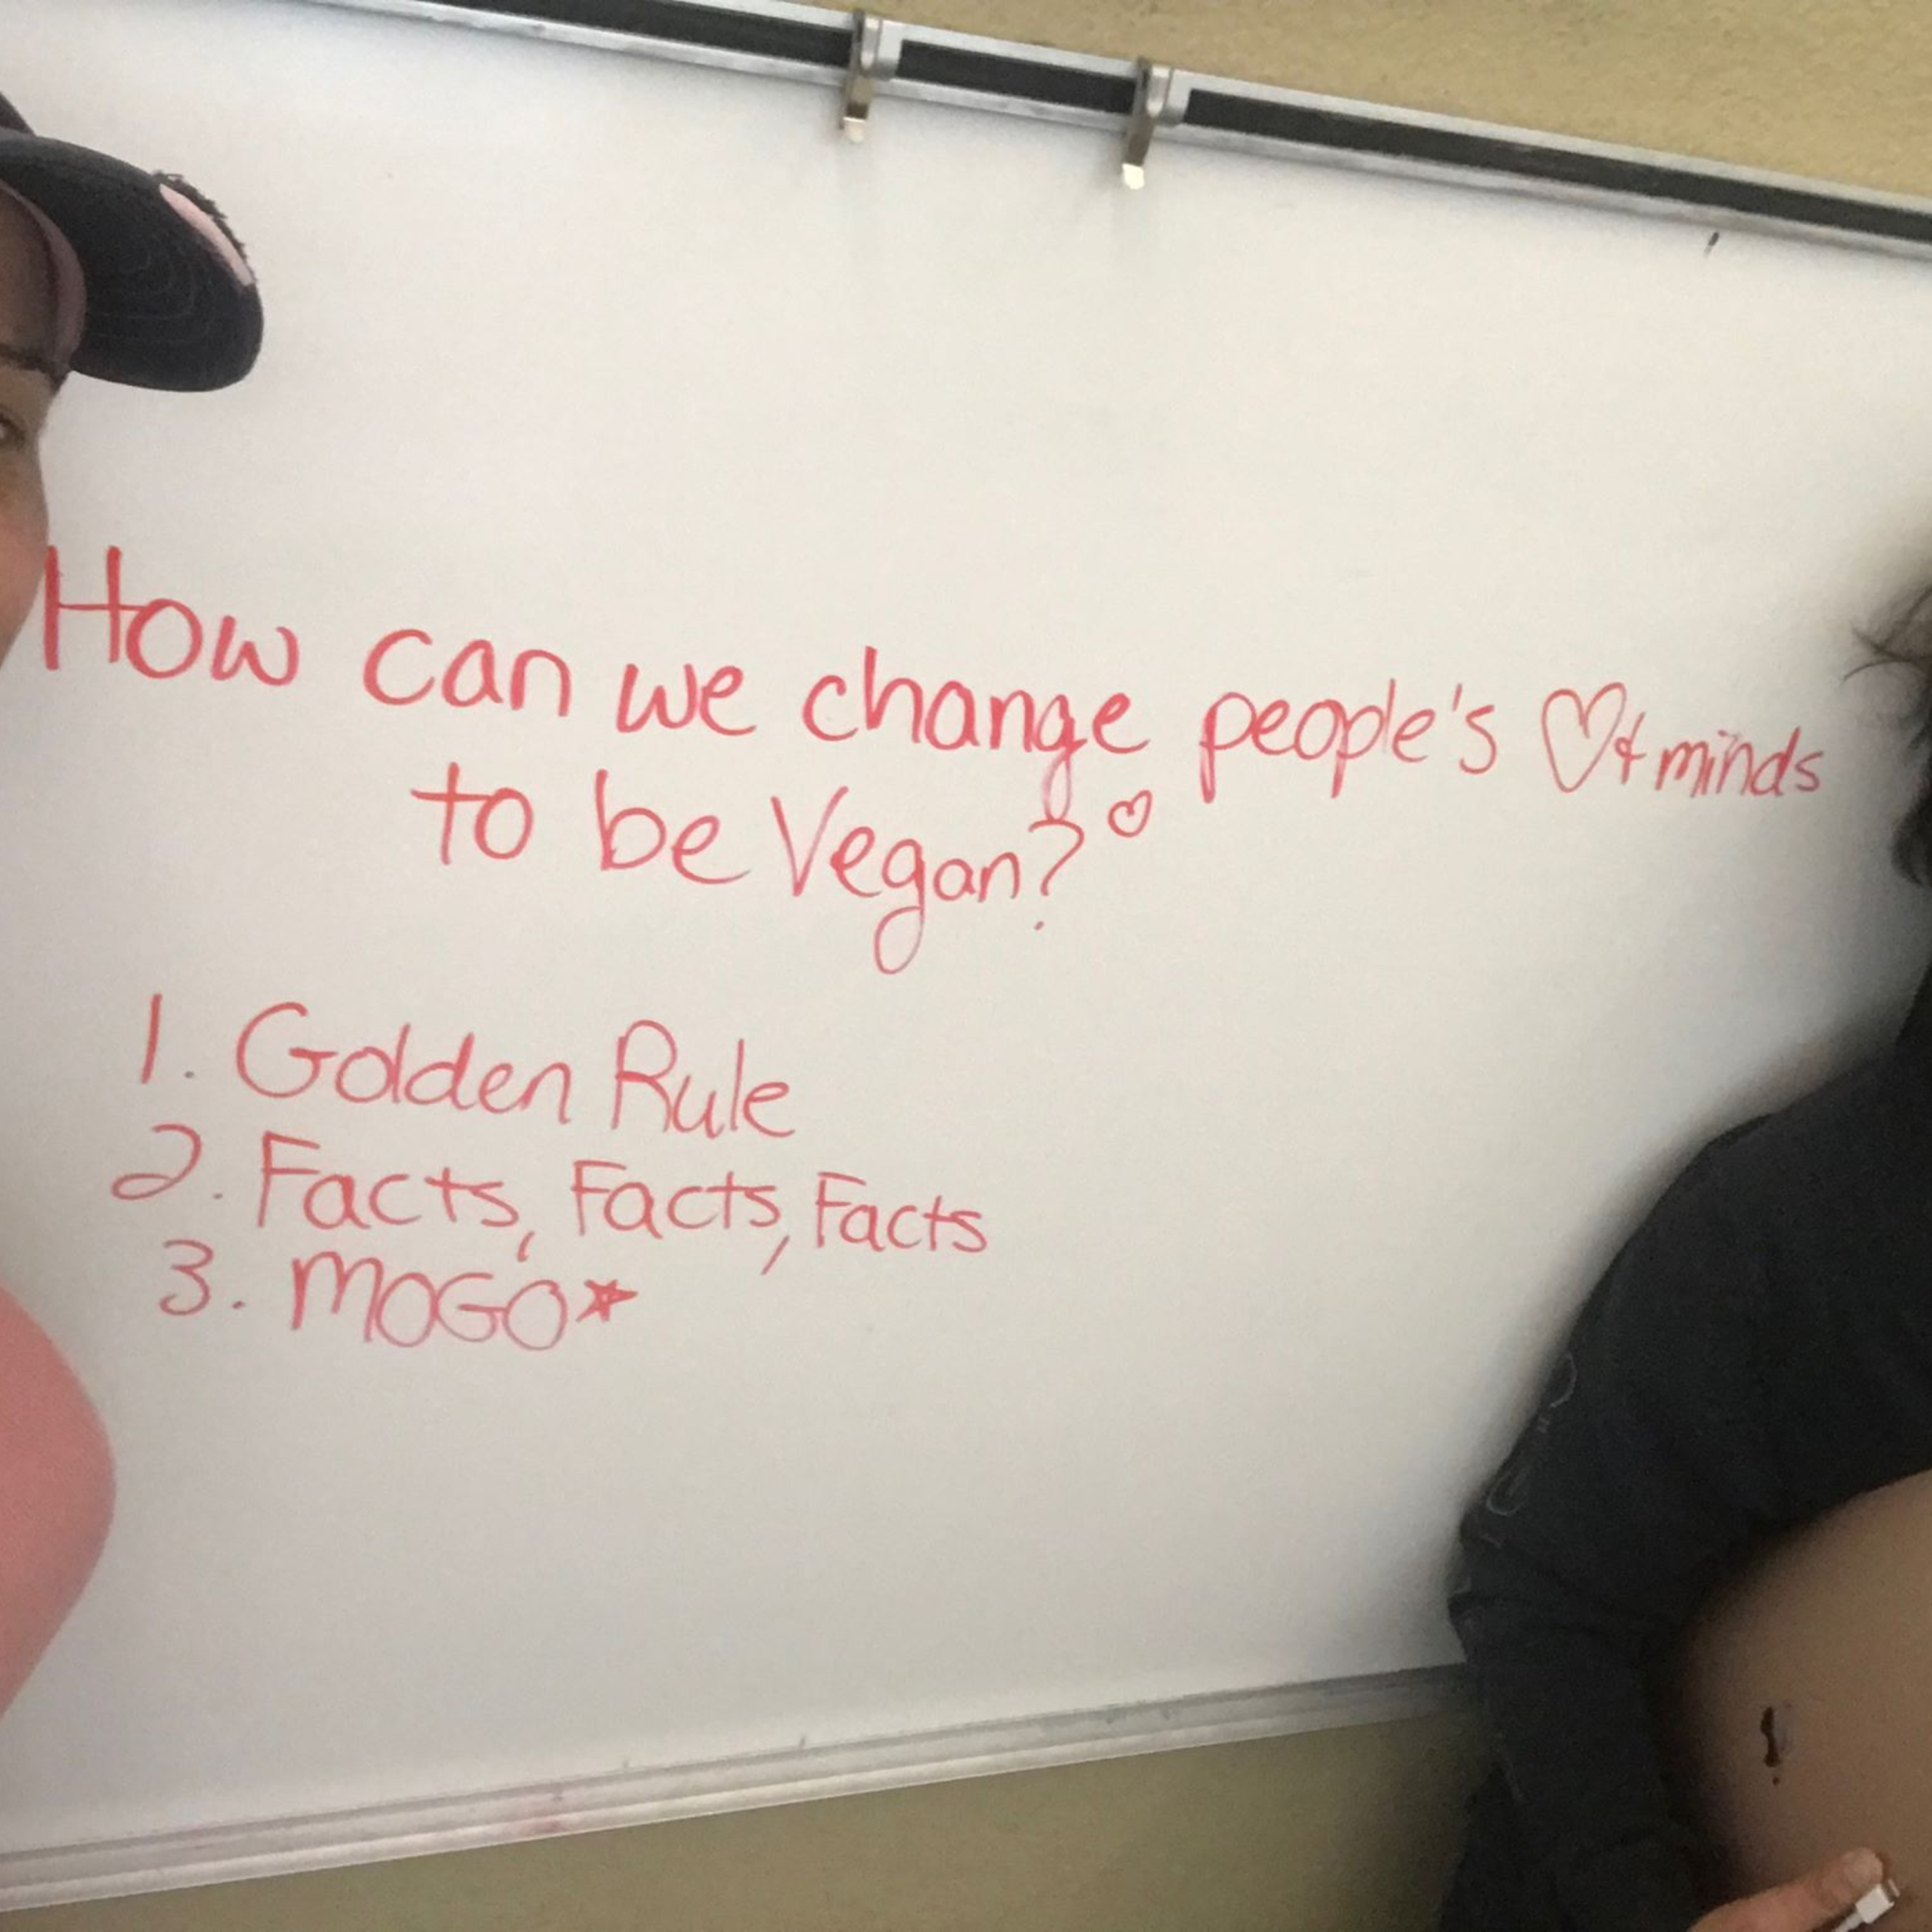 How can we change people's ♡ & minds
to be Vegan? ♡
1. Golden Rule
2. Facts, Facts, Facts
3. MOGO*